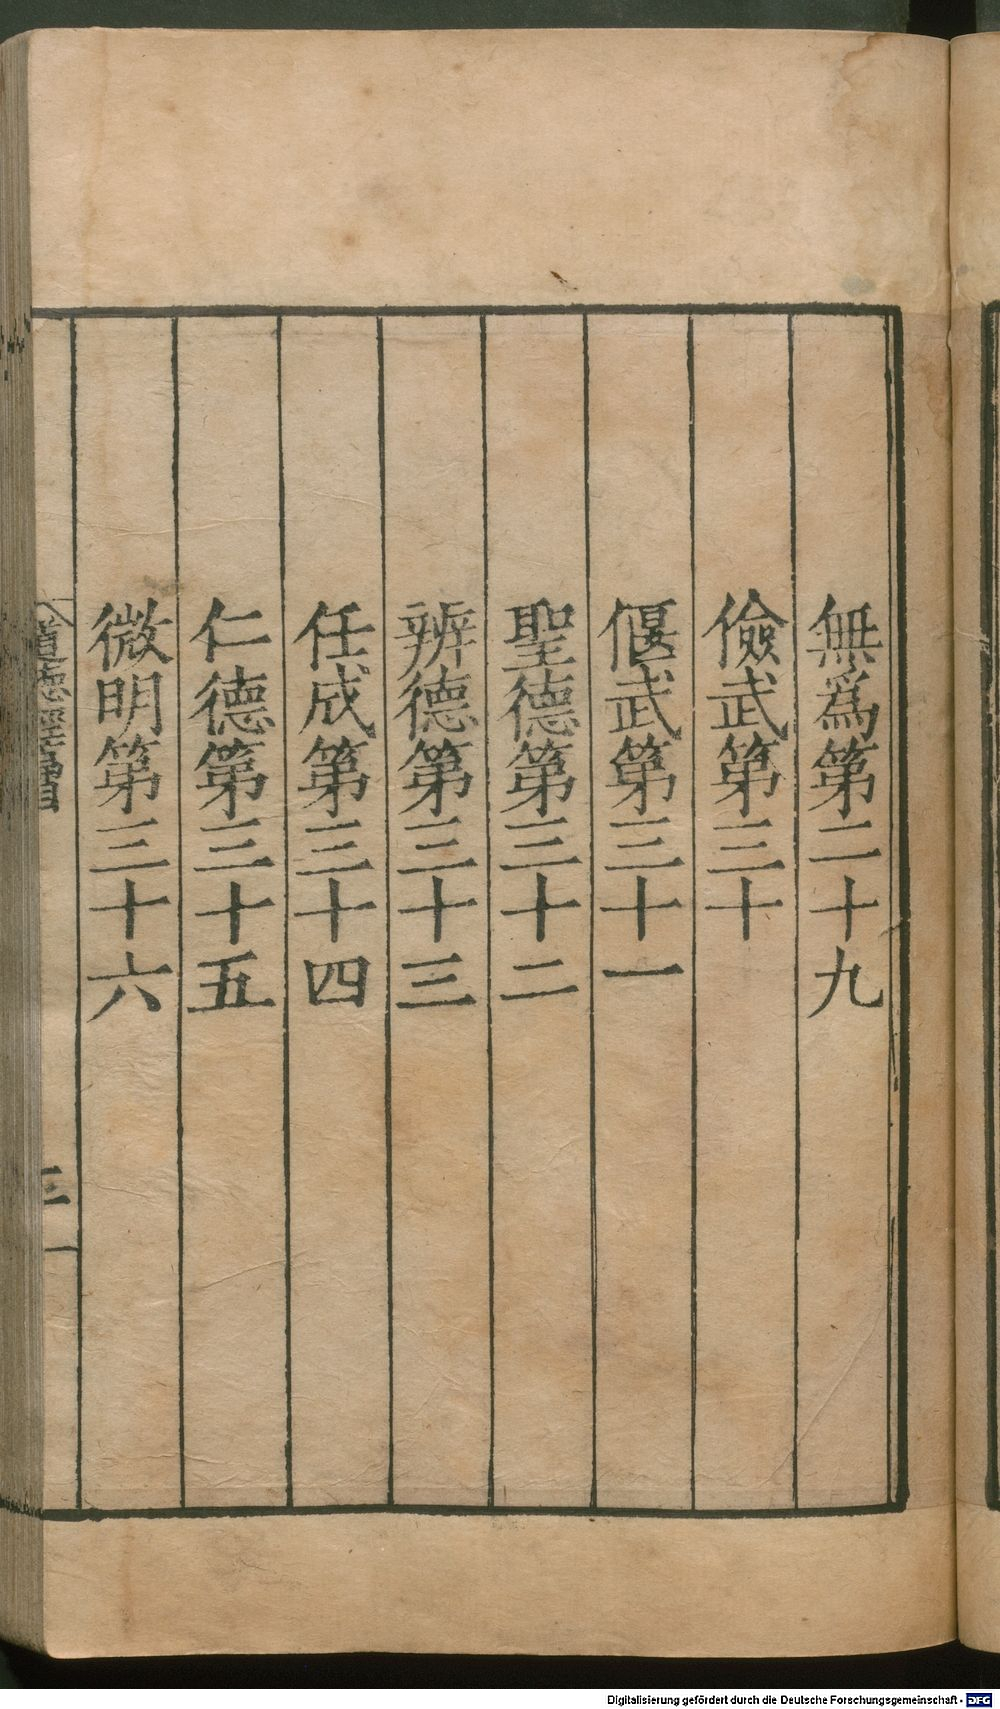 無爲第二十九
儉武第三十
偃武第三十一
聖德第三十二
辨德第三十三
任成第三十四
仁德第三十五
微明第三十六
道德經
三
Digitalisierung gefördert durch die Deutsche Forschungsgemeinschaft - DFG